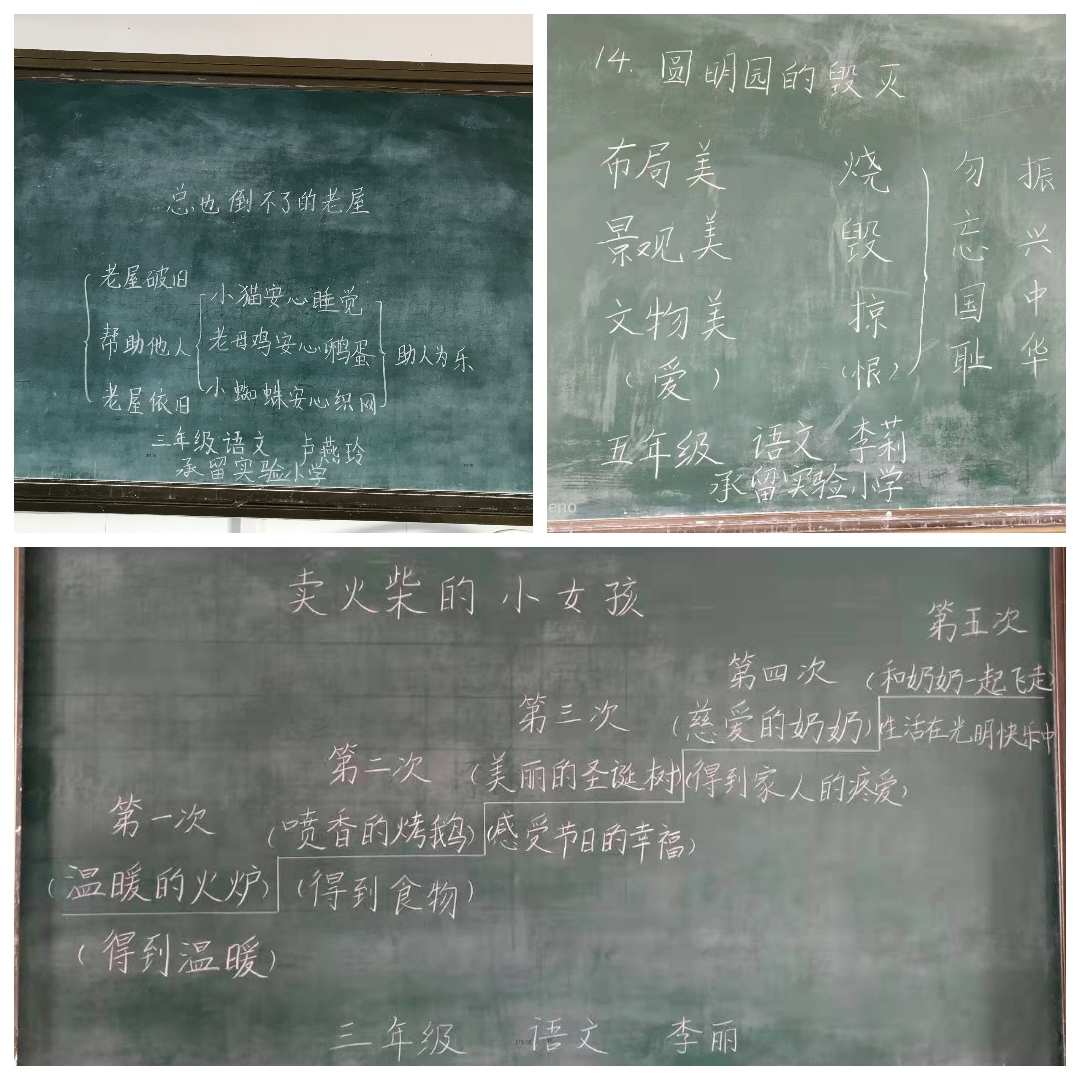 总也倒不了的老屋
老屋破旧
帮助他人
老屋依旧
小猫安心睡觉
老母鸡安心孵蛋
小蜘蛛安心织网
助人为乐
三年级语文 卢燕玲
承留实验小学
14. 圆明园的毁灭
布局美
景观美
文物美
(爱)
烧
毁
掠
(恨)
勿忘国耻
振兴中华
五年级 语文 李莉
承留实验小学
卖火柴的小女孩
第一次
(温暖的火炉)
(得到温暖)
第二次
(喷香的烤鹅)
(得到食物)
第三次
(美丽的圣诞树)
(感受节日的幸福)
第四次
(慈爱的奶奶)
(得到家人的疼爱)
第五次
(和奶奶一起飞走)
生活在光明快乐中
三年级 语文 李丽